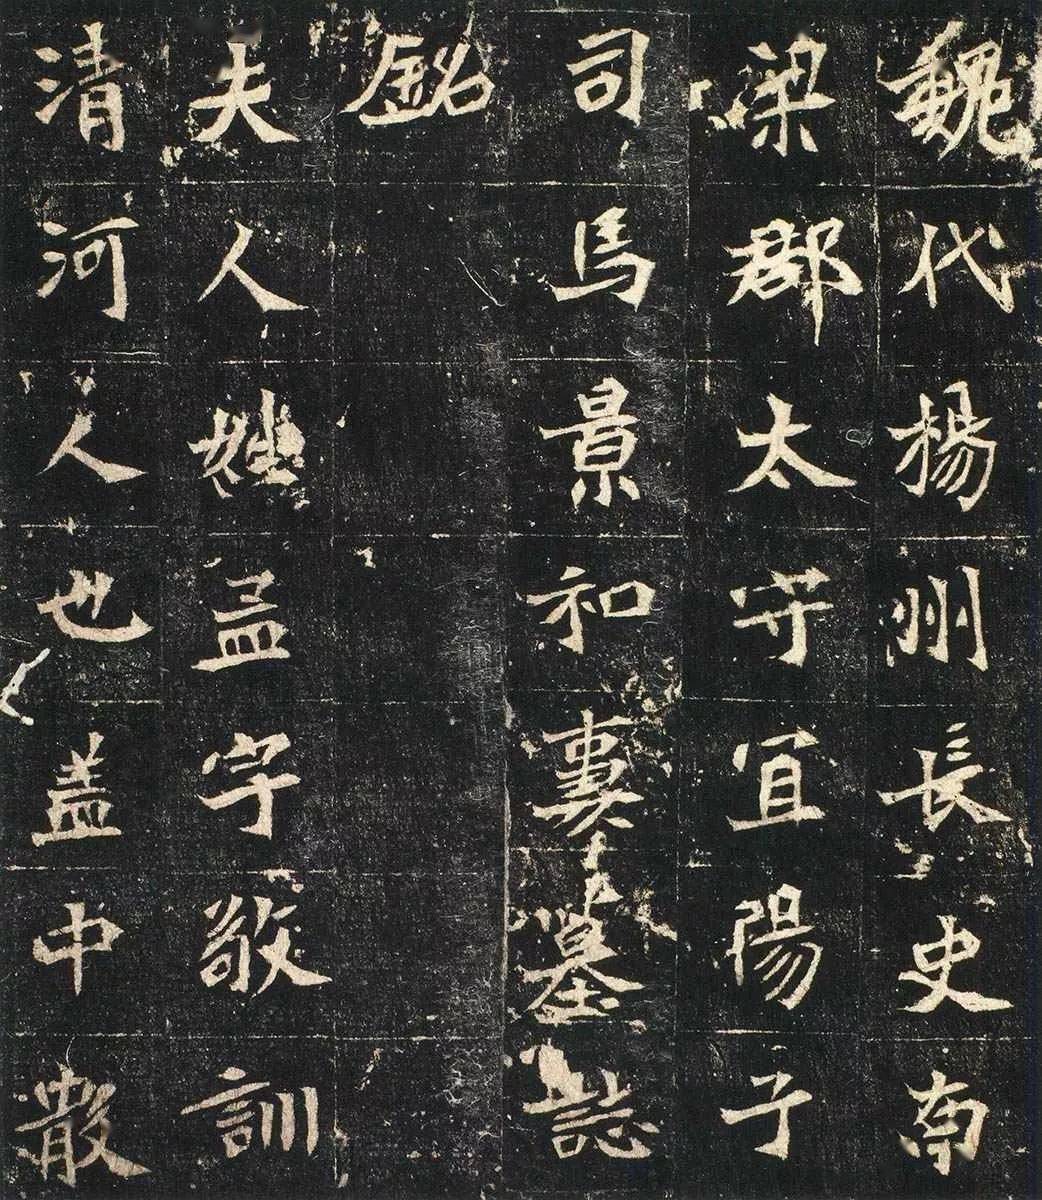 魏代楊州長史南
梁郡太守宜陽子
司馬景和妻墓誌
銘
夫人姓孟字敬訓
清河人也盖中散